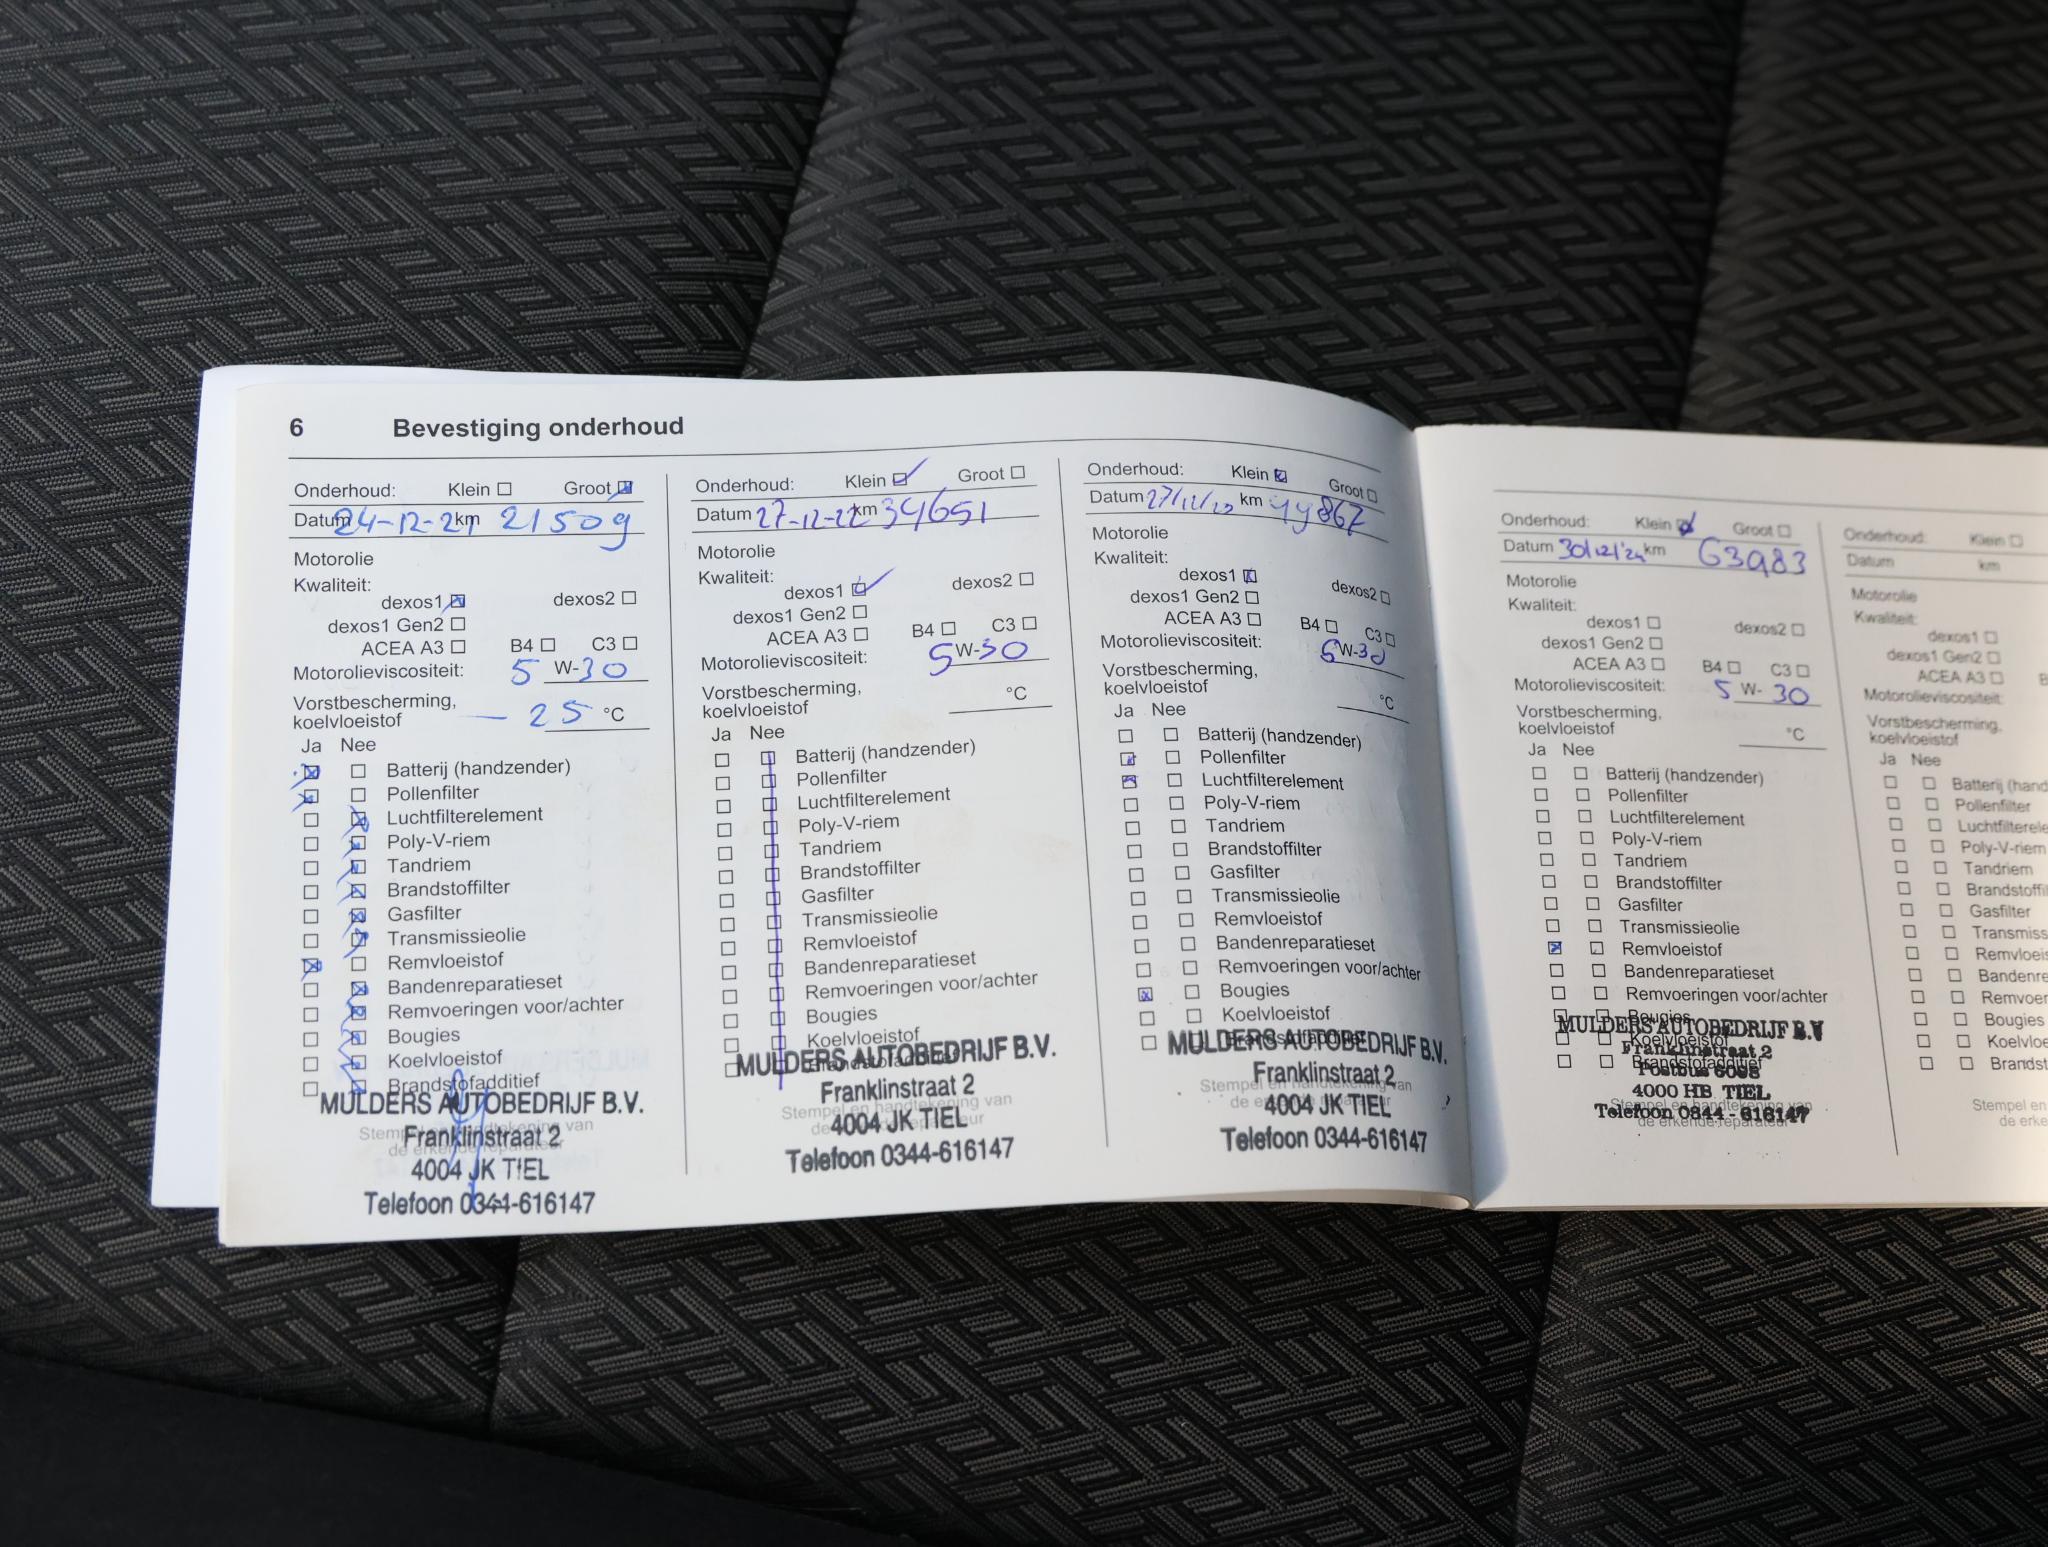 6 Bevestiging onderhoud
Onderhoud: Klein Groot
Datum 24-12-21 km 21509
Motorolie
Kwaliteit:
dexos1 dexos2
dexos1 Gen2
ACEA A3 B4 C3
Motorolieviscositeit: 5 W-30
Vorstbescherming,
koelvloeistof - 25 °C
Ja Nee
Batterij (handzender)
Pollenfilter
Luchtfilterelement
Poly-V-riem
Tandriem
Brandstoffilter
Gasfilter
Transmissieolie
Remvloeistof
Bandenreparatieset
Remvoeringen voor/achter
Bougies
Koelvloeistof
Brandstofadditief
Stempel en handtekening van
de erkende reparateur
MULDERS AUTOBEDRIJF B.V.
Franklinstraat 2
4004 JK TIEL
Telefoon 0344-616147
Onderhoud: Klein Groot
Datum 27-12-22 km 34651
Motorolie
Kwaliteit:
dexos1 dexos2
dexos1 Gen2
ACEA A3 B4 C3
Motorolieviscositeit: 5 W-30
Vorstbescherming,
koelvloeistof °C
Ja Nee
Batterij (handzender)
Pollenfilter
Luchtfilterelement
Poly-V-riem
Tandriem
Brandstoffilter
Gasfilter
Transmissieolie
Remvloeistof
Bandenreparatieset
Remvoeringen voor/achter
Bougies
Koelvloeistof
Brandstofadditief
Stempel en handtekening van
de erkende reparateur
MULDERS AUTOBEDRIJF B.V.
Franklinstraat 2
4004 JK TIEL
Telefoon 0344-616147
Onderhoud: Klein Groot
Datum km
Motorolie
Kwaliteit:
dexos1 dexos2
dexos1 Gen2
ACEA A3 B4 C3
Motorolieviscositeit: 5 W-30
Vorstbescherming,
koelvloeistof °C
Ja Nee
Batterij (handzender)
Pollenfilter
Luchtfilterelement
Poly-V-riem
Tandriem
Brandstoffilter
Gasfilter
Transmissieolie
Remvloeistof
Bandenreparatieset
Remvoeringen voor/achter
Bougies
Koelvloeistof
Brandstofadditief
Stempel en handtekening van
de erkende reparateur
MULDERS AUTOBEDRIJF B.V.
Franklinstraat 2
4004 JK TIEL
Telefoon 0344-616147
Onderhoud: Klein Groot
Datum 30/12/'24 km 63983
Motorolie
Kwaliteit:
dexos1 dexos2
dexos1 Gen2
ACEA A3 B4 C3
Motorolieviscositeit: 5 W- 30
Vorstbescherming,
koelvloeistof °C
Ja Nee
Batterij (handzender)
Pollenfilter
Luchtfilterelement
Poly-V-riem
Tandriem
Brandstoffilter
Gasfilter
Transmissieolie
Remvloeistof
Bandenreparatieset
Remvoeringen voor/achter
Bougies
Koelvloeistof
Brandstofadditief
Stempel en handtekening van
de erkende reparateur
MULDERS AUTOBEDRIJF B.V
Franklinstraat 2
Postbus 6098
4000 HB TIEL
Telefoon 0344 - 616147
Onderhoud: Klein
Datum km
Motorolie
Kwaliteit:
dexos1
dexos1 Gen2
ACEA A3 B
Motorolieviscositeit:
Vorstbescherming,
koelvloeistof
Ja Nee
Batterij (hand
Pollenfilter
Luchtfilterele
Poly-V-riem
Tandriem
Brandstoffil
Gasfilter
Transmiss
Remvloeis
Bandenre
Remvoer
Bougies
Koelvloe
Brandst
Stempel en
de erke